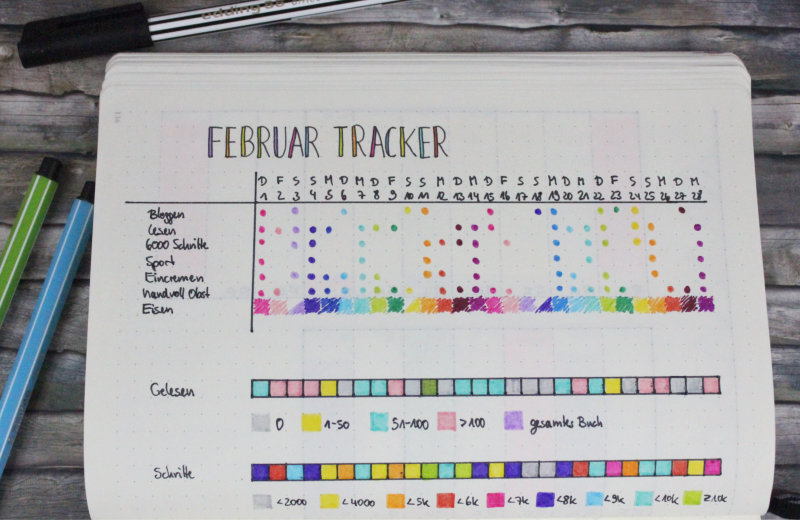 edding 55
FEBRUAR TRACKER
D F S S M D M D F S S M D M D F S S M D M D F S S M D M
1 2 3 4 5 6 7 8 9 10 11 12 13 14 15 16 17 18 19 20 21 22 23 24 25 26 27 28
Bloggen
Lesen
6000 Schritte
Sport
Eincremen
handvoll Obst
Eisen
Gelesen
0 1-50 51-100 >100 gesamtes Buch
Schritte
<2000 <4000 <5k <6k <7k <8k <9k <10k ≥10k